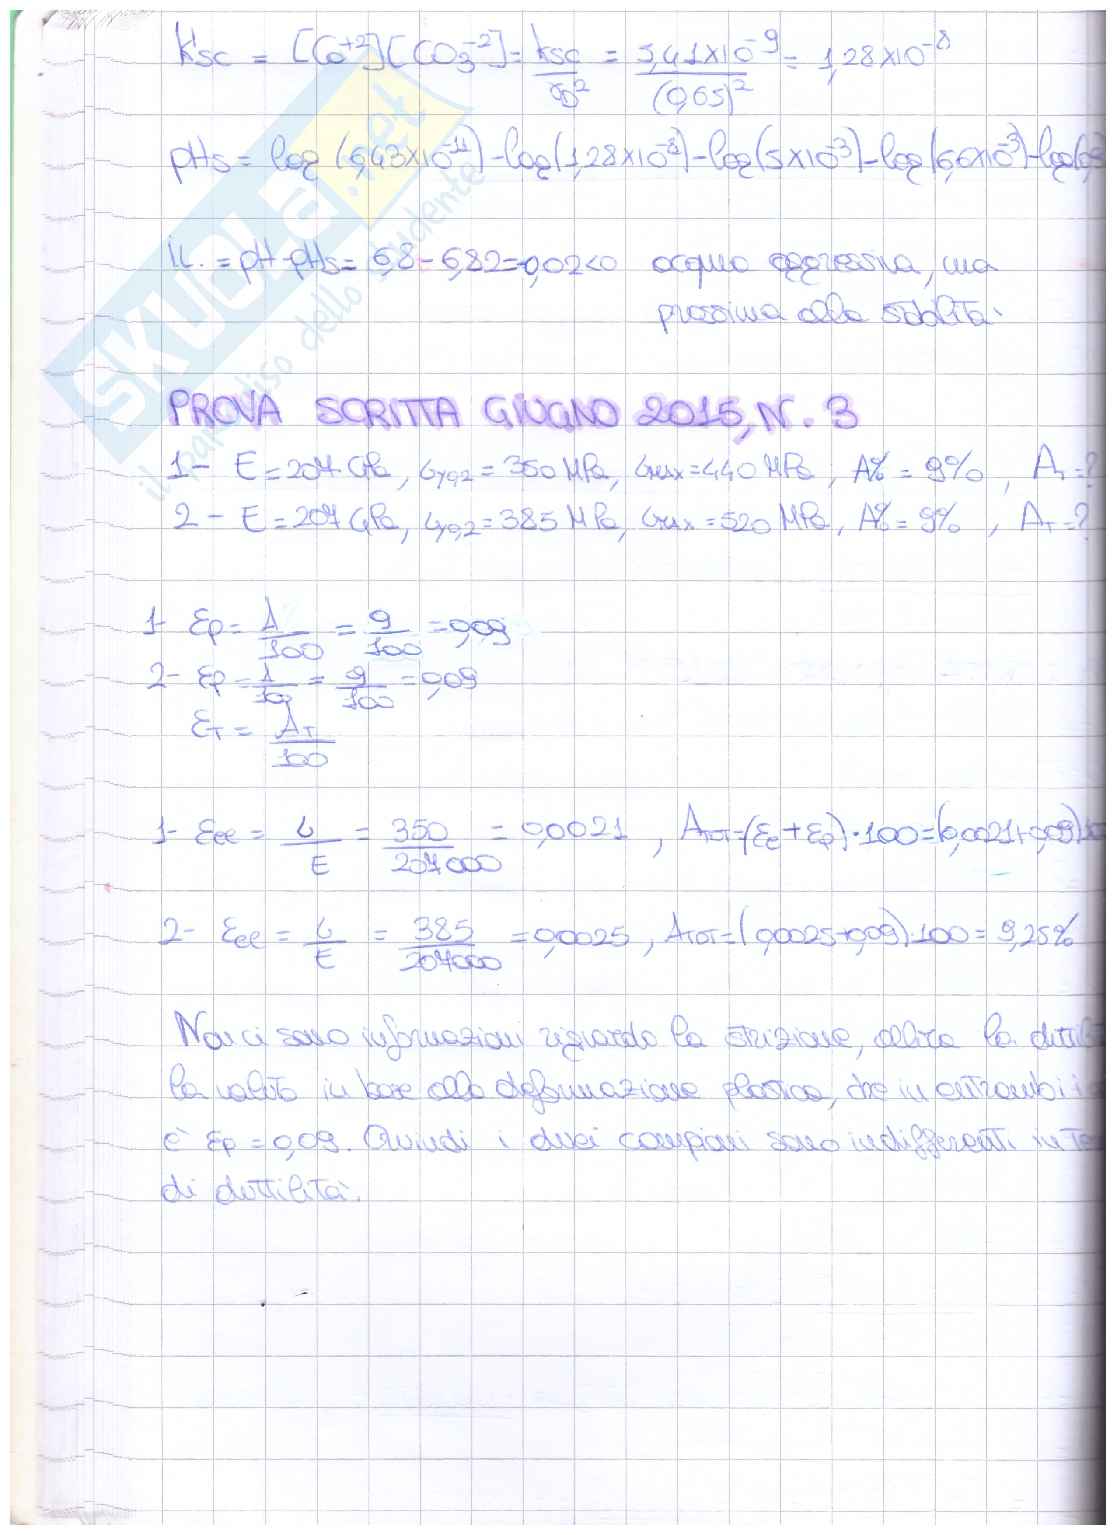 K'sc = [Ca+2][CO3-2] = ksc/γD² = 5,41x10-9/(0,65)² = 1,28x10-8
pHs = log(6,43x10-11) - log(1,28x10-8) - log(5x10-3) - log(6,6x10-3) - log(0,
i.L. = pH - pHs = 6,8 - 6,82 = -0,02 < 0 acqua aggressiva, ma
prossima alla stabilità.
PROVA SCRITTA GIUGNO 2015, N. 3
1- E = 207 GPa, σy0,2 = 350 MPa, σmax = 440 MPa, A% = 9%, AT = ?
2- E = 207 GPa, σy0,2 = 385 MPa, σmax = 520 MPa, A% = 9%, AT = ?
1- εp = A/100 = 9/100 = 0,09
2- εp = A/100 = 9/100 = 0,09
εT = AT/100
1- εel = σ/E = 350/207000 = 0,0021, ATOT = (εe + εp)·100 = (0,0021+0,09)
2- εel = σ/E = 385/207000 = 0,0025, ATOT = (0,0025+0,09)·100 = 9,25%
Non ci sono informazioni riguardo la strizione, allora la
la valuto in base alla deformazione plastica, che in entrambi i
è εp = 0,09. Quindi i due campioni sono indifferenti in
di duttilità.
SKUOLA.net
il paradiso dello studente